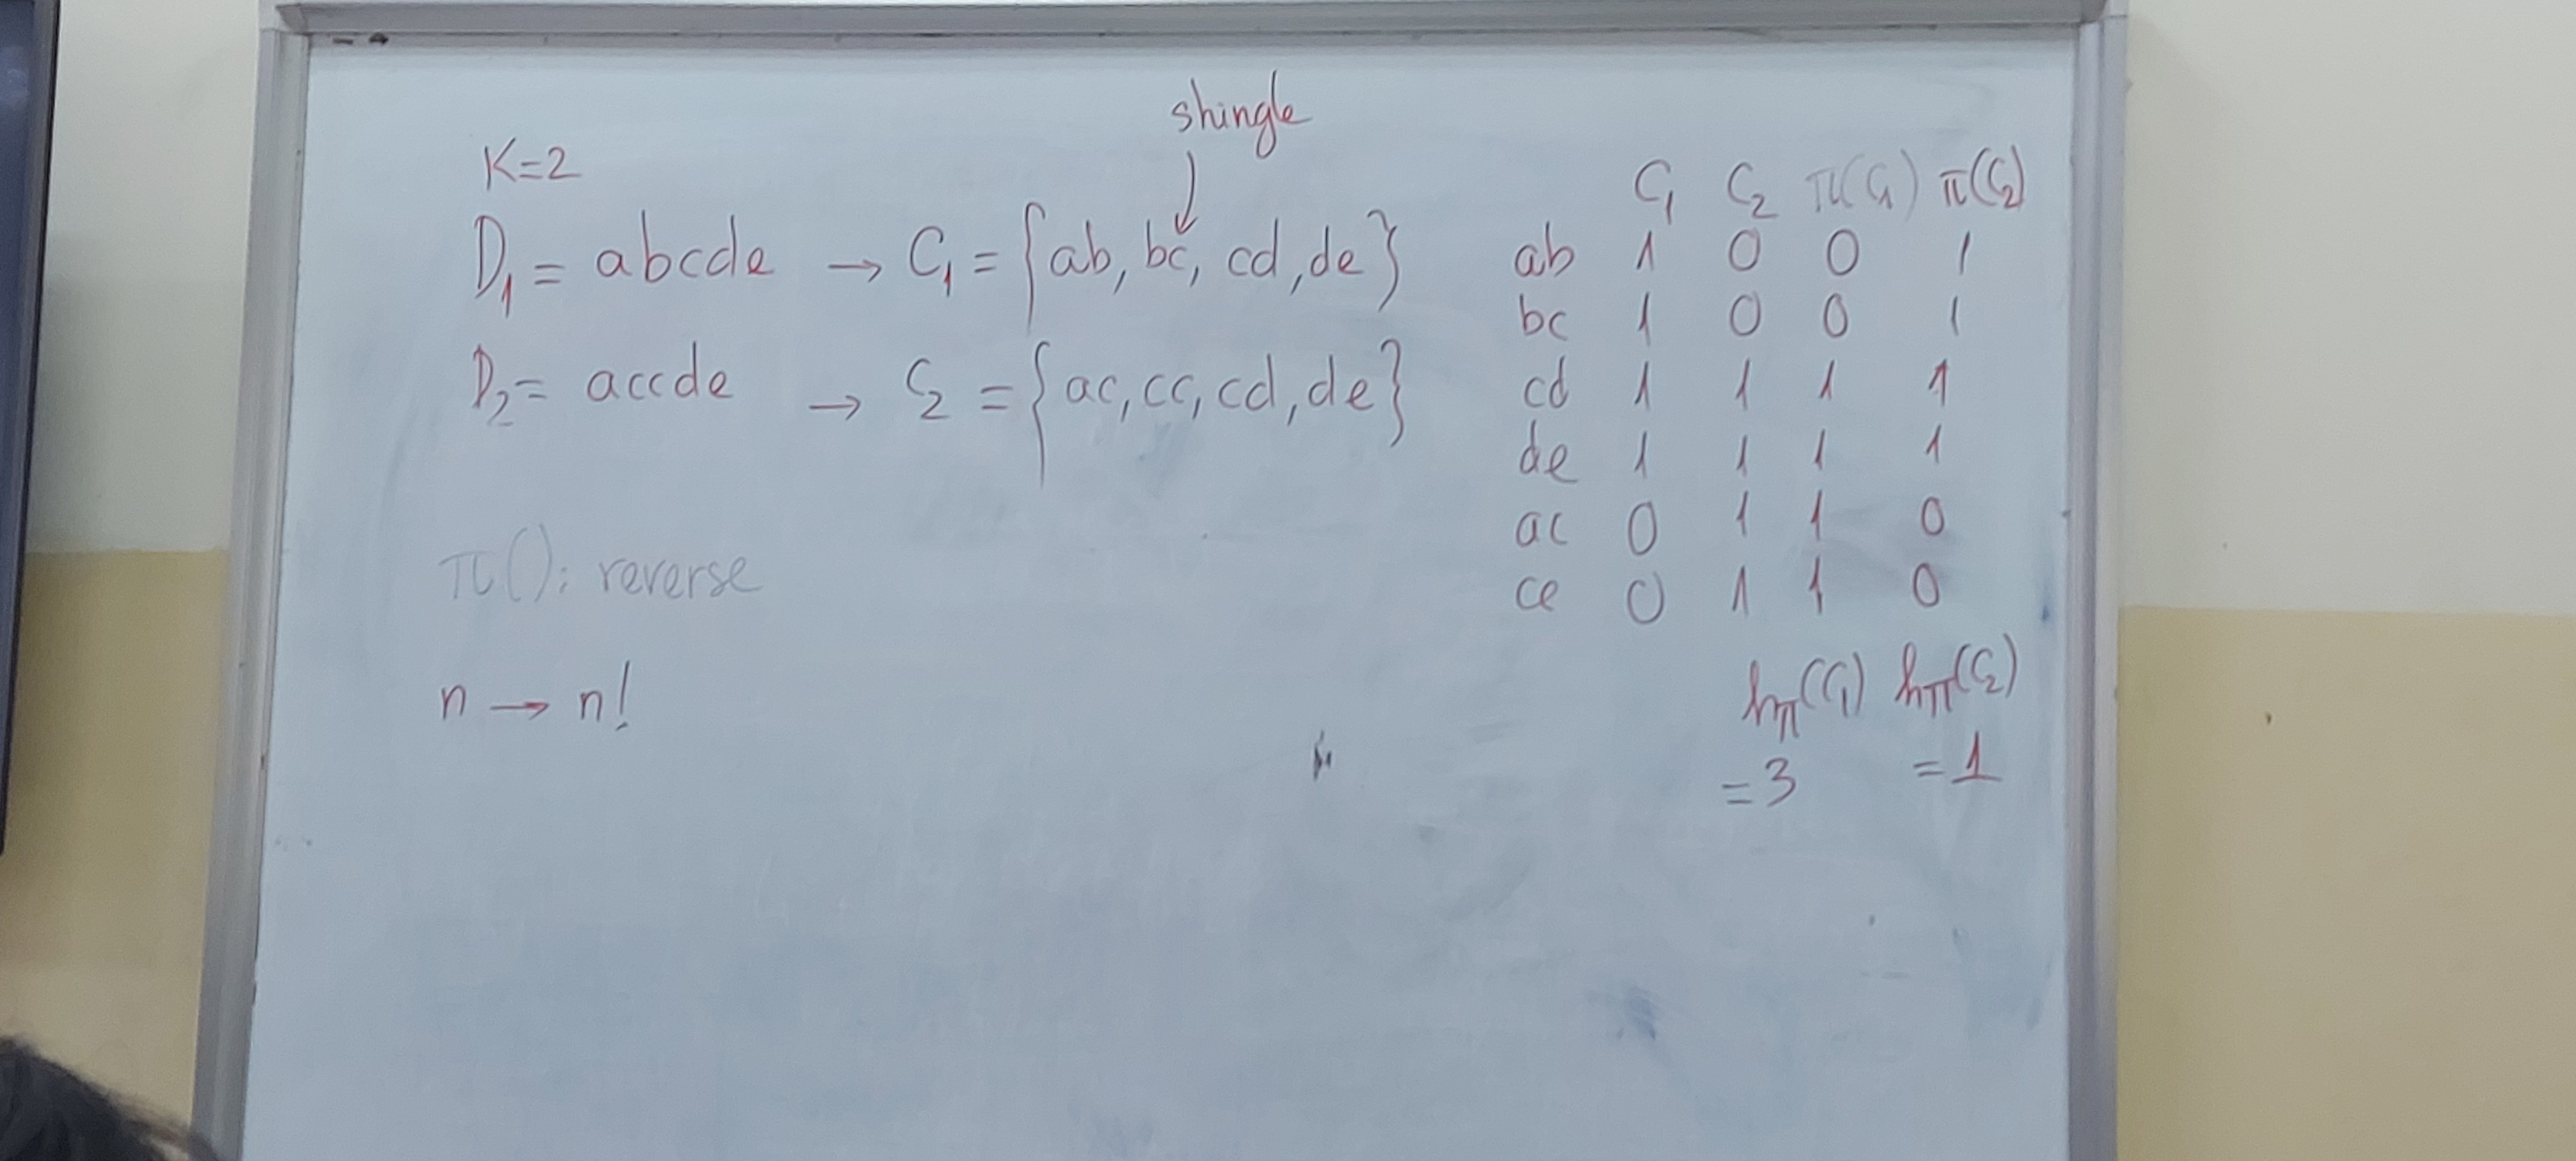 shingle
K=2
D₁ = abcde → C₁ = {ab, bc, cd, de}
D₂ = accde → C₂ = {ac, cc, cd, de}
π(): reverse
n → n!
C₁ C₂ π(C₁) π(C₂)
ab 1 0 0 1
bc 1 0 0 1
cd 1 1 1 1
de 1 1 1 1
ac 0 1 1 0
ce 0 1 1 0
hπ(C₁) hπ(C₂)
=3 =1